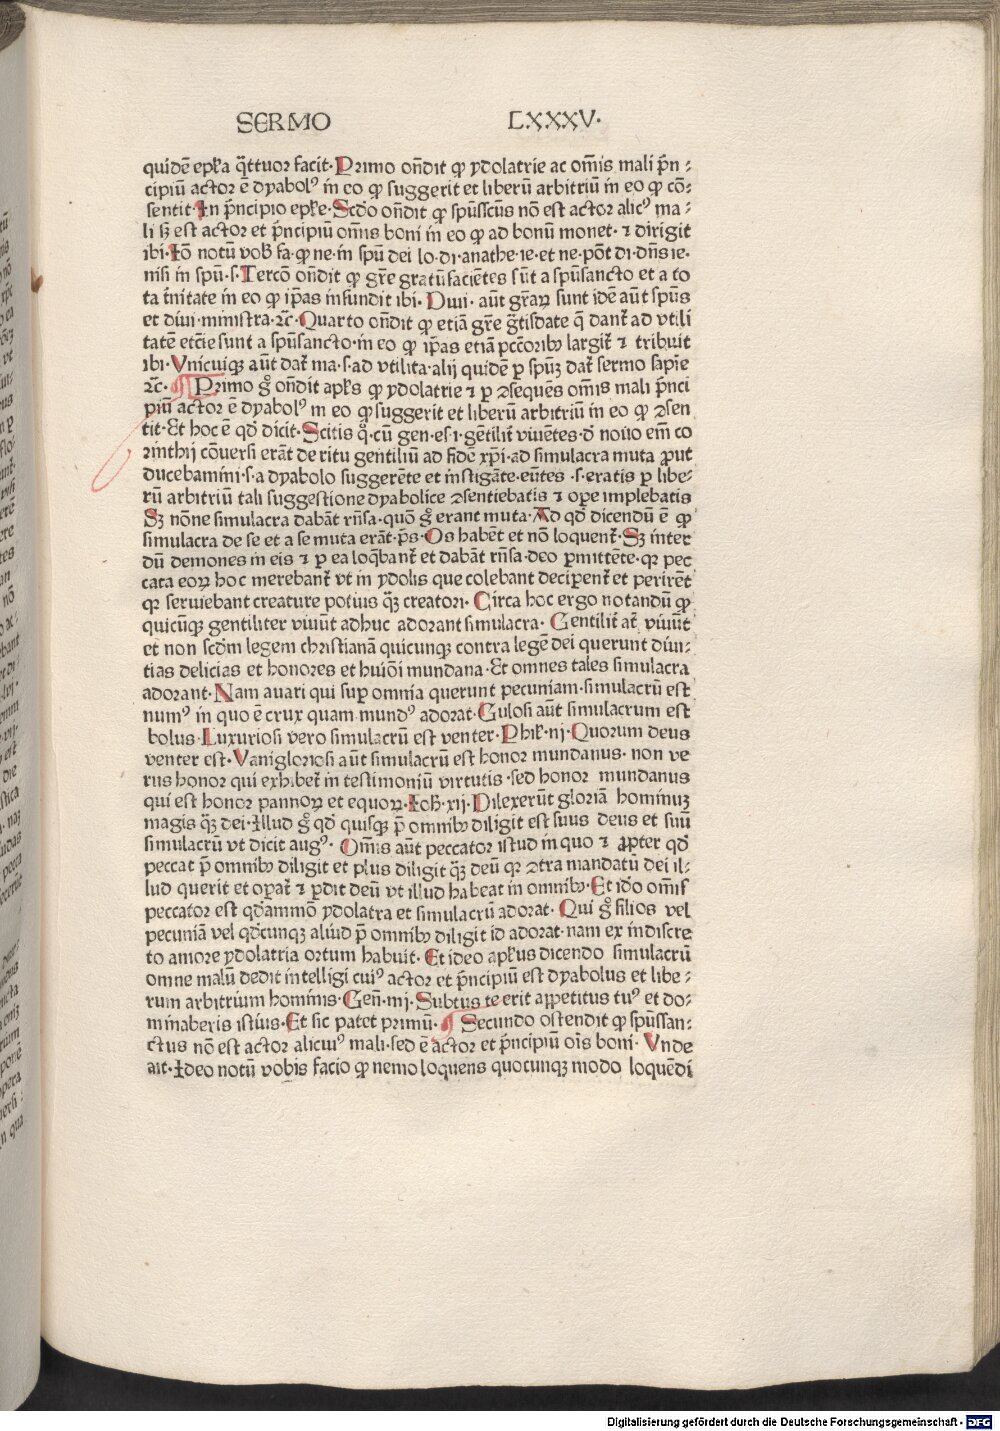 SERMO LXXXV·
quidē epłā q̄ttuor facit·Primo on̄dit ꝙ ydolatrie ac om̄is mali p̄n⸗
cipiū actor ē dyabolꝰ in eo ꝙ suggerit et liberū arbitriū in eo ꝙ cō⸗
sentit·In p̄ncipio epłe·Scdo on̄dit ꝙ spūsscūs nō est actor alicꝰ ma⸗
li sꝫ est actor et p̄ncipiū om̄is boni in eo ꝙ ad bonū monet·⁊ dirigit
ibi·Iō notū vob̄ fa·ꝙ ne·in spū dei lo·di·anathe·ie·et ne·pōt di·dn̄s ie·
nisi in spū·s·Tercō on̄dit ꝙ gr̄e gratūfaciētes sūt a spūsancto et a to
ta t̄nitate in eo ꝙ ip̄as infundit ibi·Diui·aūt gr̄aꝝ sunt idē aūt spūs
et diui·ministra·⁊c̄·Quarto on̄dit ꝙ etiā gr̄e g̅tisdate q̄ danť ad vtili
tatē etc̄ie sunt a spūsancto·in eo ꝙ ip̄as etiā pcc̄oribꝰ largiť ⁊ tribuit
ibi·Vnicuiqꝫ aūt dať ma·s·ad vtilita·alij quidē ꝑ spūꝫ dať sermo sapīe
⁊c̄·¶ Primo gͦ on̄dit apłs ꝙ ydolatrie ⁊ ꝑ ꝯsequēs om̄is mali p̄nci
piū actor ē dyabolꝰ in eo ꝙ suggerit et liberū arbitriū in eo ꝙ ꝯsen
tit·Et hoc ē qd̄ dicit·Scitis qͦ·cū gen·es·i·gētiliť viuētes·d̄ nouo em̄ co
rinthij cōuersi erāt de ritu gentiliū ad fidē xp̄i·ad simulacra muta ꝓut
ducebamini·s·a dyabolo suggerēte et instigāte·eūtes·s·eratis ꝑ libe⸗
rū arbitriū tali suggestione dyabolice ꝯsentiebatis ⁊ oꝑe implebatis
Sꝫ nōne simulacra dabāt rn̄sa·quō gͦ erant muta·Ad qd̄ dicendū ē ꝙ
simulacra de se et a se muta erāt·p̄s·Os habēt et nō loquenť·Sꝫ inter
dū demones in eis ⁊ ꝑ ea loq̄banť et dabāt rn̄sa·deo ꝑmittēte·qꝛ pec
cata eoꝝ hoc merebanť vt in ydolis que colebant deciꝑenť et perirēt
qꝛ seruiebant creature potius qꝫ̄ creatori·Circa hoc ergo notandū ꝙ
quicūqꝫ gentiliter viuūt adhuc adorant simulacra·Gentiliť at̄ viuūt
et non scd̄m legem christianā quicunqꝫ contra legē dei querunt diui⸗
tias delicias et honores et huiōi mundana·Et omnes tales simulacra
adorant·Nam auari qui suꝑ omnia querunt pecuniam·simulacrū est
numꝰ in quo ē crux quam mundꝰ adorat·Gulosi aūt simulacrum est
bolus·Luxuriosi vero simulacrū est venter·Phił·iij·Quorum deus
venter est·Vanigloriosi aūt simulacrū est honor mundanus·non ve
rus honor qui exhibeť in testimoniū virtutis·sed honor mundanus
qui est honor pannoꝝ et equoꝝ·Ioh̄·xij·Dilexerūt gloriā hominuꝫ
magis qꝫ̄ dei·Illud gͦ qd̄ quisqꝫ p̄ omnibꝰ diligit est suus deus et suū
simulacrū vt dicit augꝰ·Om̄is aūt peccator istud in quo ⁊ ꝓpter qd̄
peccat p̄ omnibꝰ diligit et plus diligit qꝫ̄ deū qꝛ ꝯtra mandatū dei il⸗
lud querit et oꝑať ⁊ ꝑdit deū vt illud habeat in omnibꝰ·Et ido om̄is
peccator est qd̄ammō ydolatra et simulacrū adorat·Qui gͦ filios vel
pecuniā vel qd̄cunqꝫ aliud p̄ omnibꝰ diligit id adorat·nam ex indiscre
to amore ydolatria ortum habuit·Et ideo apłus dicendo simulacrū
omne malū dedit intelligi cuiꝰ actor et p̄ncipiū est dyabolus et libe⸗
rum arbitrium hominis·Gen̄·iiij·Subtus te erit appetitus tuꝰ et do⸗
minaberis istius·Et sic patet primū·¶ Secundo ostendit ꝙ spūssan⸗
ctus nō est actor alicuiꝰ mali·sed ē actor et p̄ncipiū oīs boni·Vnde
ait·Ideo notū vobis facio ꝙ nemo loquens quocunqꝫ modo loquēdi
Digitalisierung gefördert durch die Deutsche Forschungsgemeinschaft - DFG